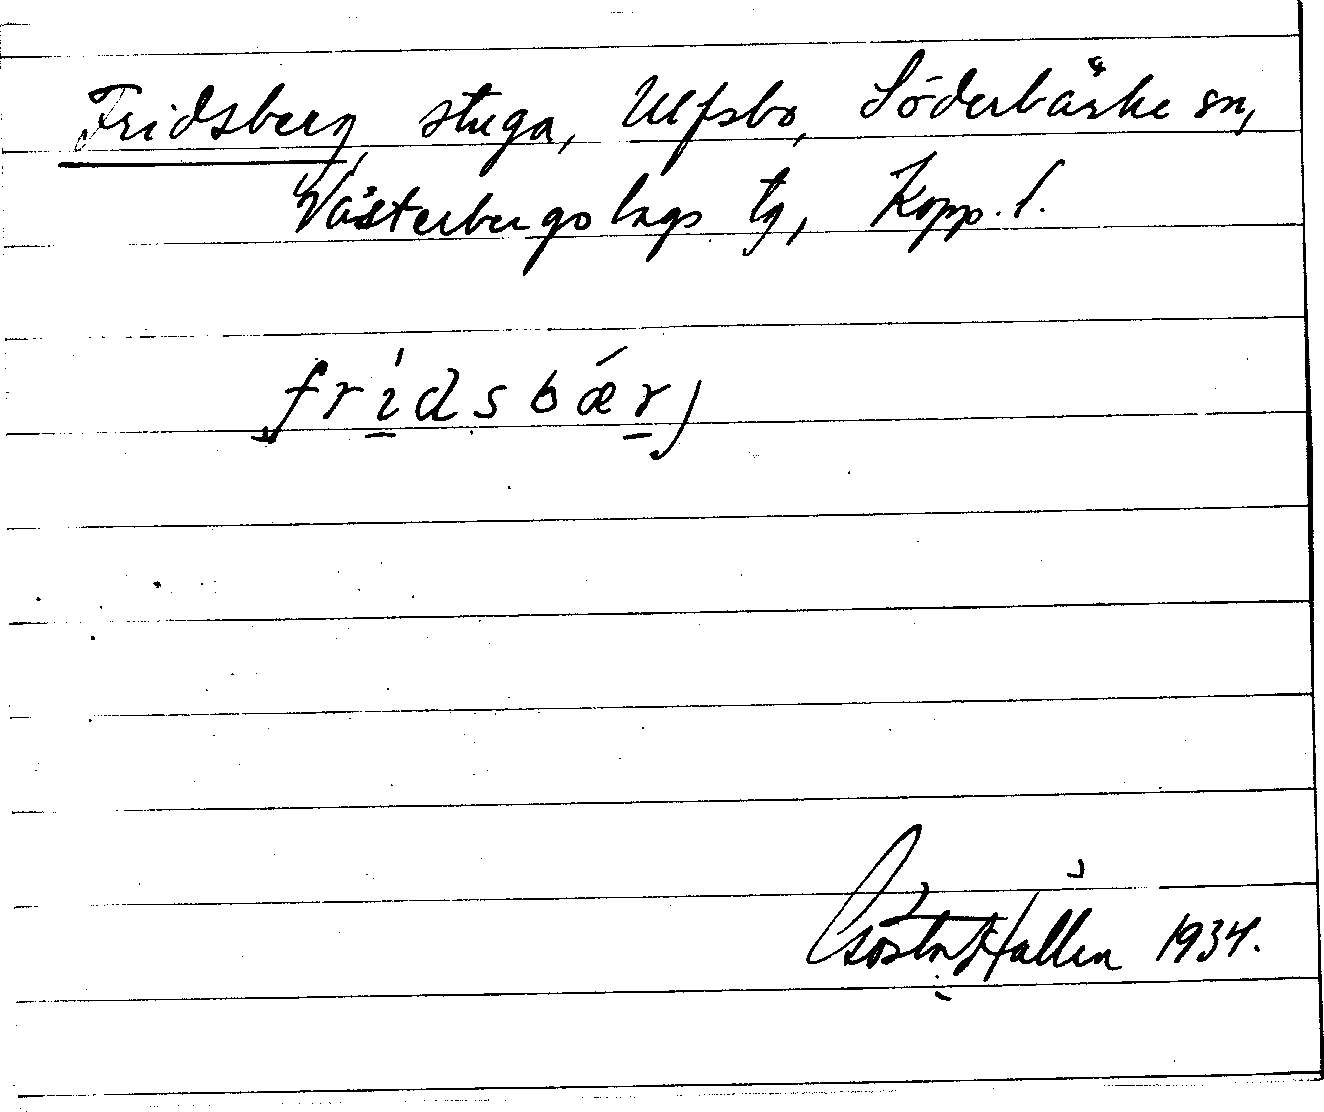 Fridsberg, stuga, Ulfsbo, Söderbärke sn,
Västerbergslags tg, Kopp. l.
fri̱dsbǽṟj
Gösta Hallén 1934.